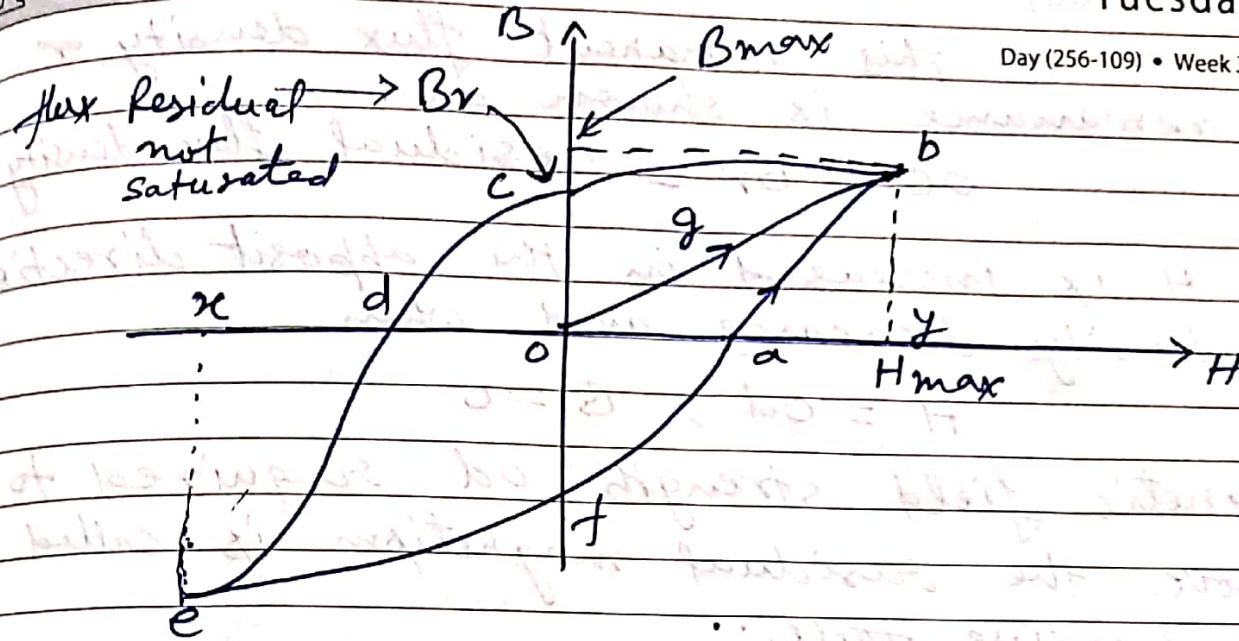 Tuesda
Day (256-109) • Week 3
B
Bmax
flux Residual → Br
not
saturated
b
c
g
x
d
o
a
y
Hmax
H
f
e